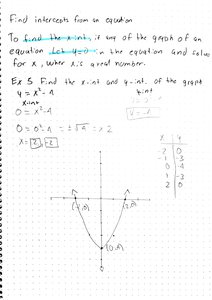 Find intercepts from an equation
To find the x-int, if any of the graph of an
equation let y=0 in the equation and solve
for x, where x is a real number.
Ex 5 Find the x-int and y-int. of the graph
y = x² - 4
x-int
y-int
0 = x² - 4
x y
-2 0
-1 -3
0 -4
1 -3
2 0
(-2,0)
(2,0)
(0,-4)